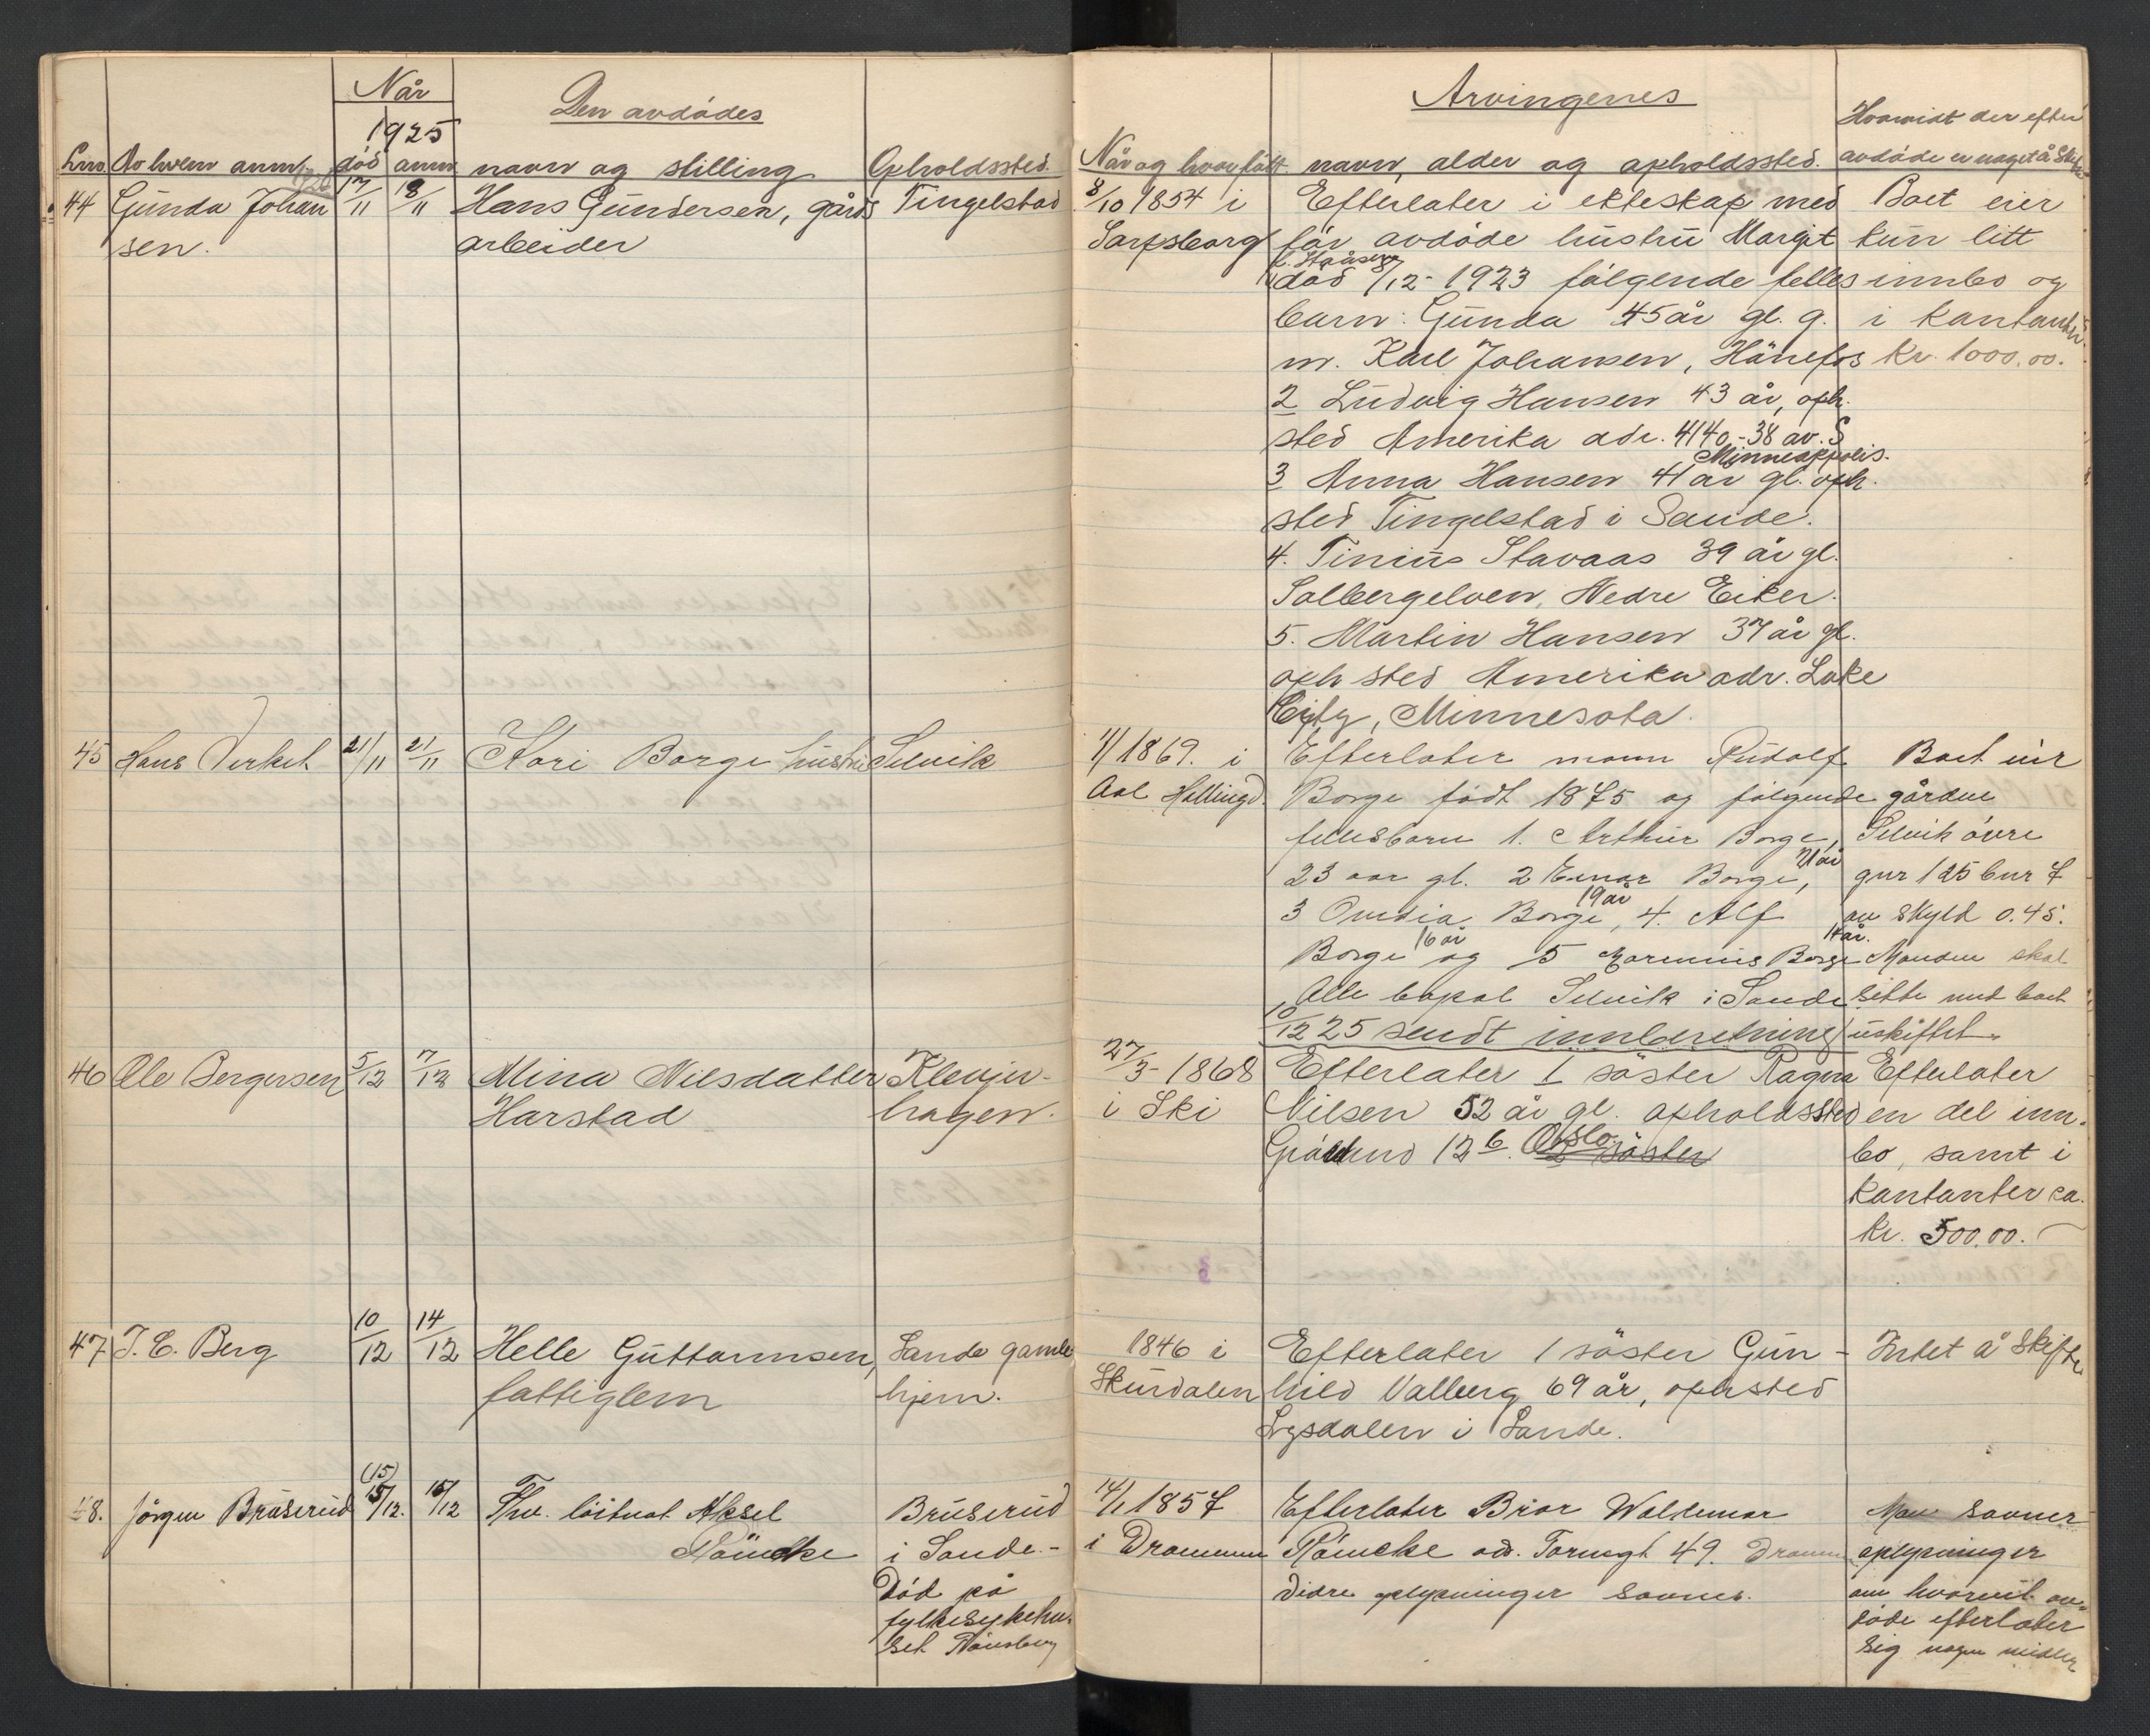 Når
1925
Den avdødes
Lnr. Av hvem anm. død anm navn og stilling Opholdssted.
44 Gunda Johan 17/11 18/11 Hans Gundersen, gårds Tingelstad
sen. arbeider
45 Hans Virket 21/11 21/11 Kari Borge hustru Selvik
46 Ole Bergersen 5/12 7/12 Mina Nilsdatter Klevjer-
Harstad hagen.
47 J. E. Berg 10/12 14/12 Helle Guttormsen, Sande gamle
fattiglem hjem.
(15)
48. Jörgen Bruserud 15/12. 16/12 Fhv. löitnat Aksel Bruserud
Römcke i Sande.-
Död på
fylkesykehu-
set Tönsberg
Arvingenes
Hvorvidt der efter
Når og hvor født navn, alder og opholdssted. avdøde er noget å skifte
8/10 1854 i Efterlater i ekteskap med Boet eier
Sarpsborg før avdøde hustru Margit kun litt
død 8/12-1923 følgende felles innbo og
barn: Gunda 45 år gl. g. i kontanter
m. Karl Johansen, Hönefos kr. 1000.00.
2 Ludvig Hansen 43 år, oph.
sted Amerika adr. 4140-38 av. S
Minneappolis.
3 Anna Hansen 41 år gl. oph.
sted Tingelstad i Sande.
4. Tinius Stavaas 39 år gl.
Solbergelven, Nedre Eiker.
5. Martin Hansen 37 år gl.
oph sted Amerika adr. Lake
City, Minnesota.
1869. i Efterlater mann Rudolf Boet eier
Aal Hallingd. Borge født 1875 og følgende gården
fellesbarn 1. Arthur Borge, Selvik övre
21 år
23 aar gl. 2 Einar Borge, gnr 125 bnr 7
19 år
3 Ovidia Borge, 4. Alf av skyld 0.45.
16 år 14 år.
Borge og 5 Borge Manden skal
Alle bopæl Selvik i Sande sitte med boet
10/12 25 sendt innberetning uskiftet.
27/3-1868 Efterlater 1 søster Ragna Efterlater
i Ski Nilsen 52 år gl. opholdssted en del inn-
Grönland 12 6. Oslo. søster bo, samt i
kontanter ca.
kr. 500.00.
1846 i Efterlater 1 søster Gun- Intet å skifte
Skurdalen hild Valberg 69 år, ophsted
Lysdalen i Sande.
14/1 1857 Efterlater Bror Waldemar Man savner
i Drammen Römcke adr. Tornegt 49. Dramm oplysninger
Vidre oplysninger savnes. om hvorvit av-
døde efterlater
sig nogen midler